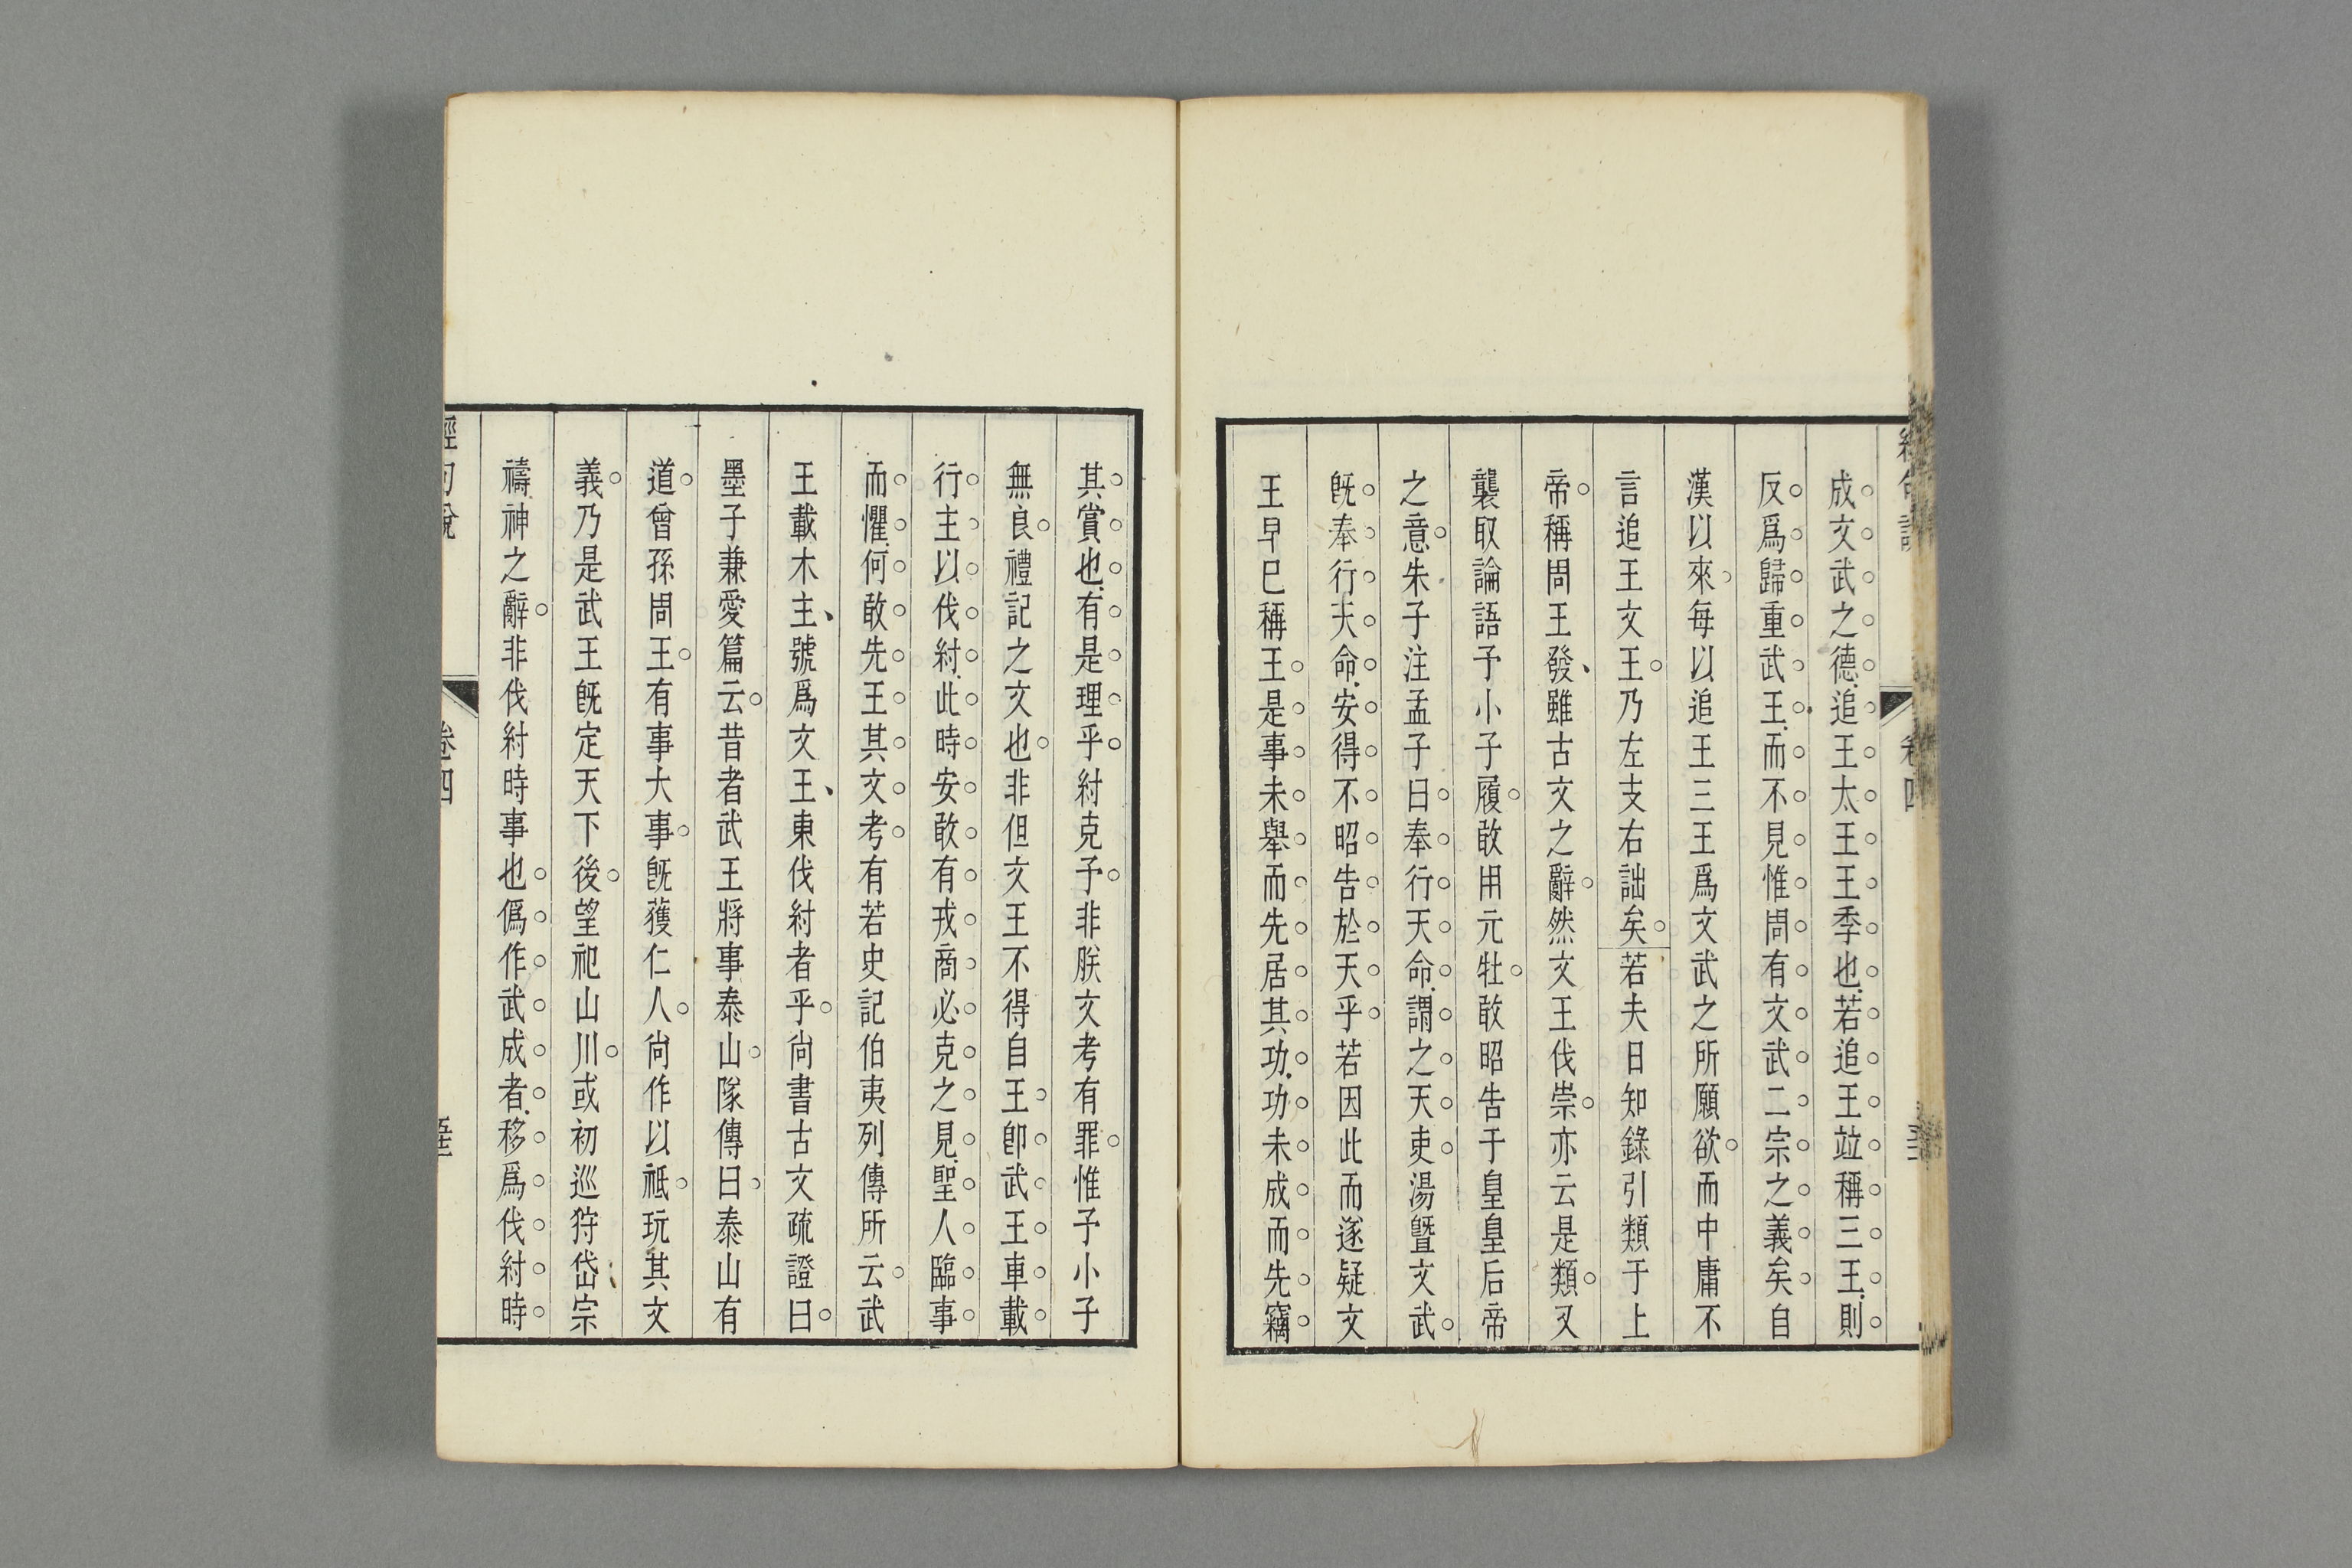 成文武之德追王太王王季也若追王竝稱三王則
反爲歸重武王而不見惟周有文武二宗之義矣自
漢以來每以追王三王爲文武之所願欲而中庸不
言追王文王乃左支右詘矣若夫日知錄引類于上
帝稱周王發雖古文之辭然文王伐崇亦云是類又
襲取論語予小子履敢用元牡敢昭告于皇皇后帝
之意朱子注孟子曰奉行天命謂之天吏湯曁文武
旣奉行天命安得不昭告於天乎若因此而遂疑文
王早已稱王是事未舉而先居其功功未成而先竊
其賞也有是理乎紂克予非朕文考有罪惟予小子
無良禮記之文也非但文王不得自王卽武王車載
行主以伐紂此時安敢有戎商必克之見聖人臨事
而懼何敢先王其文考有若史記伯夷列傳所云武
王載木主號爲文王東伐紂者乎尙書古文疏證曰
墨子兼愛篇云昔者武王將事泰山隊傳曰泰山有
道曾孫周王有事大事旣獲仁人尙作以祗玩其文
義乃是武王旣定天下後望祀山川或初巡狩岱宗
禱神之辭非伐紂時事也僞作武成者移爲伐紂時
卷四